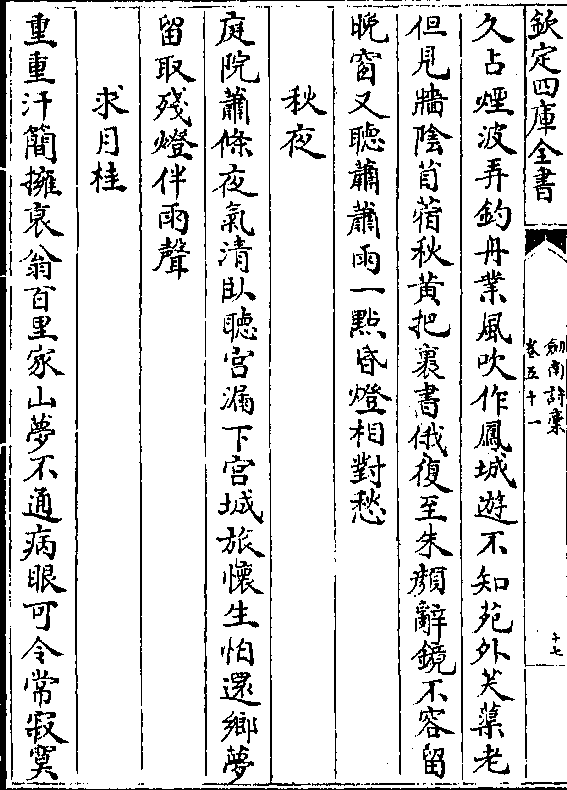 欽定四庫全書
劍南詩稾
卷五十一
十七
久占煙波弄釣舟業風吹作鳳城遊不知苑外芙蕖老
但見牆陰苜蓿秋黃把裹書俄復至朱顏辭鏡不容留
晚窗又聽蕭蕭雨一點昏燈相對愁
秋夜
庭院蕭條夜氣清臥聽宮漏下宮城旅懷生怕還鄉夢
留取殘燈伴雨聲
求月桂
重重汗簡擁衰翁百里家山夢不通病眼可令常寂寞